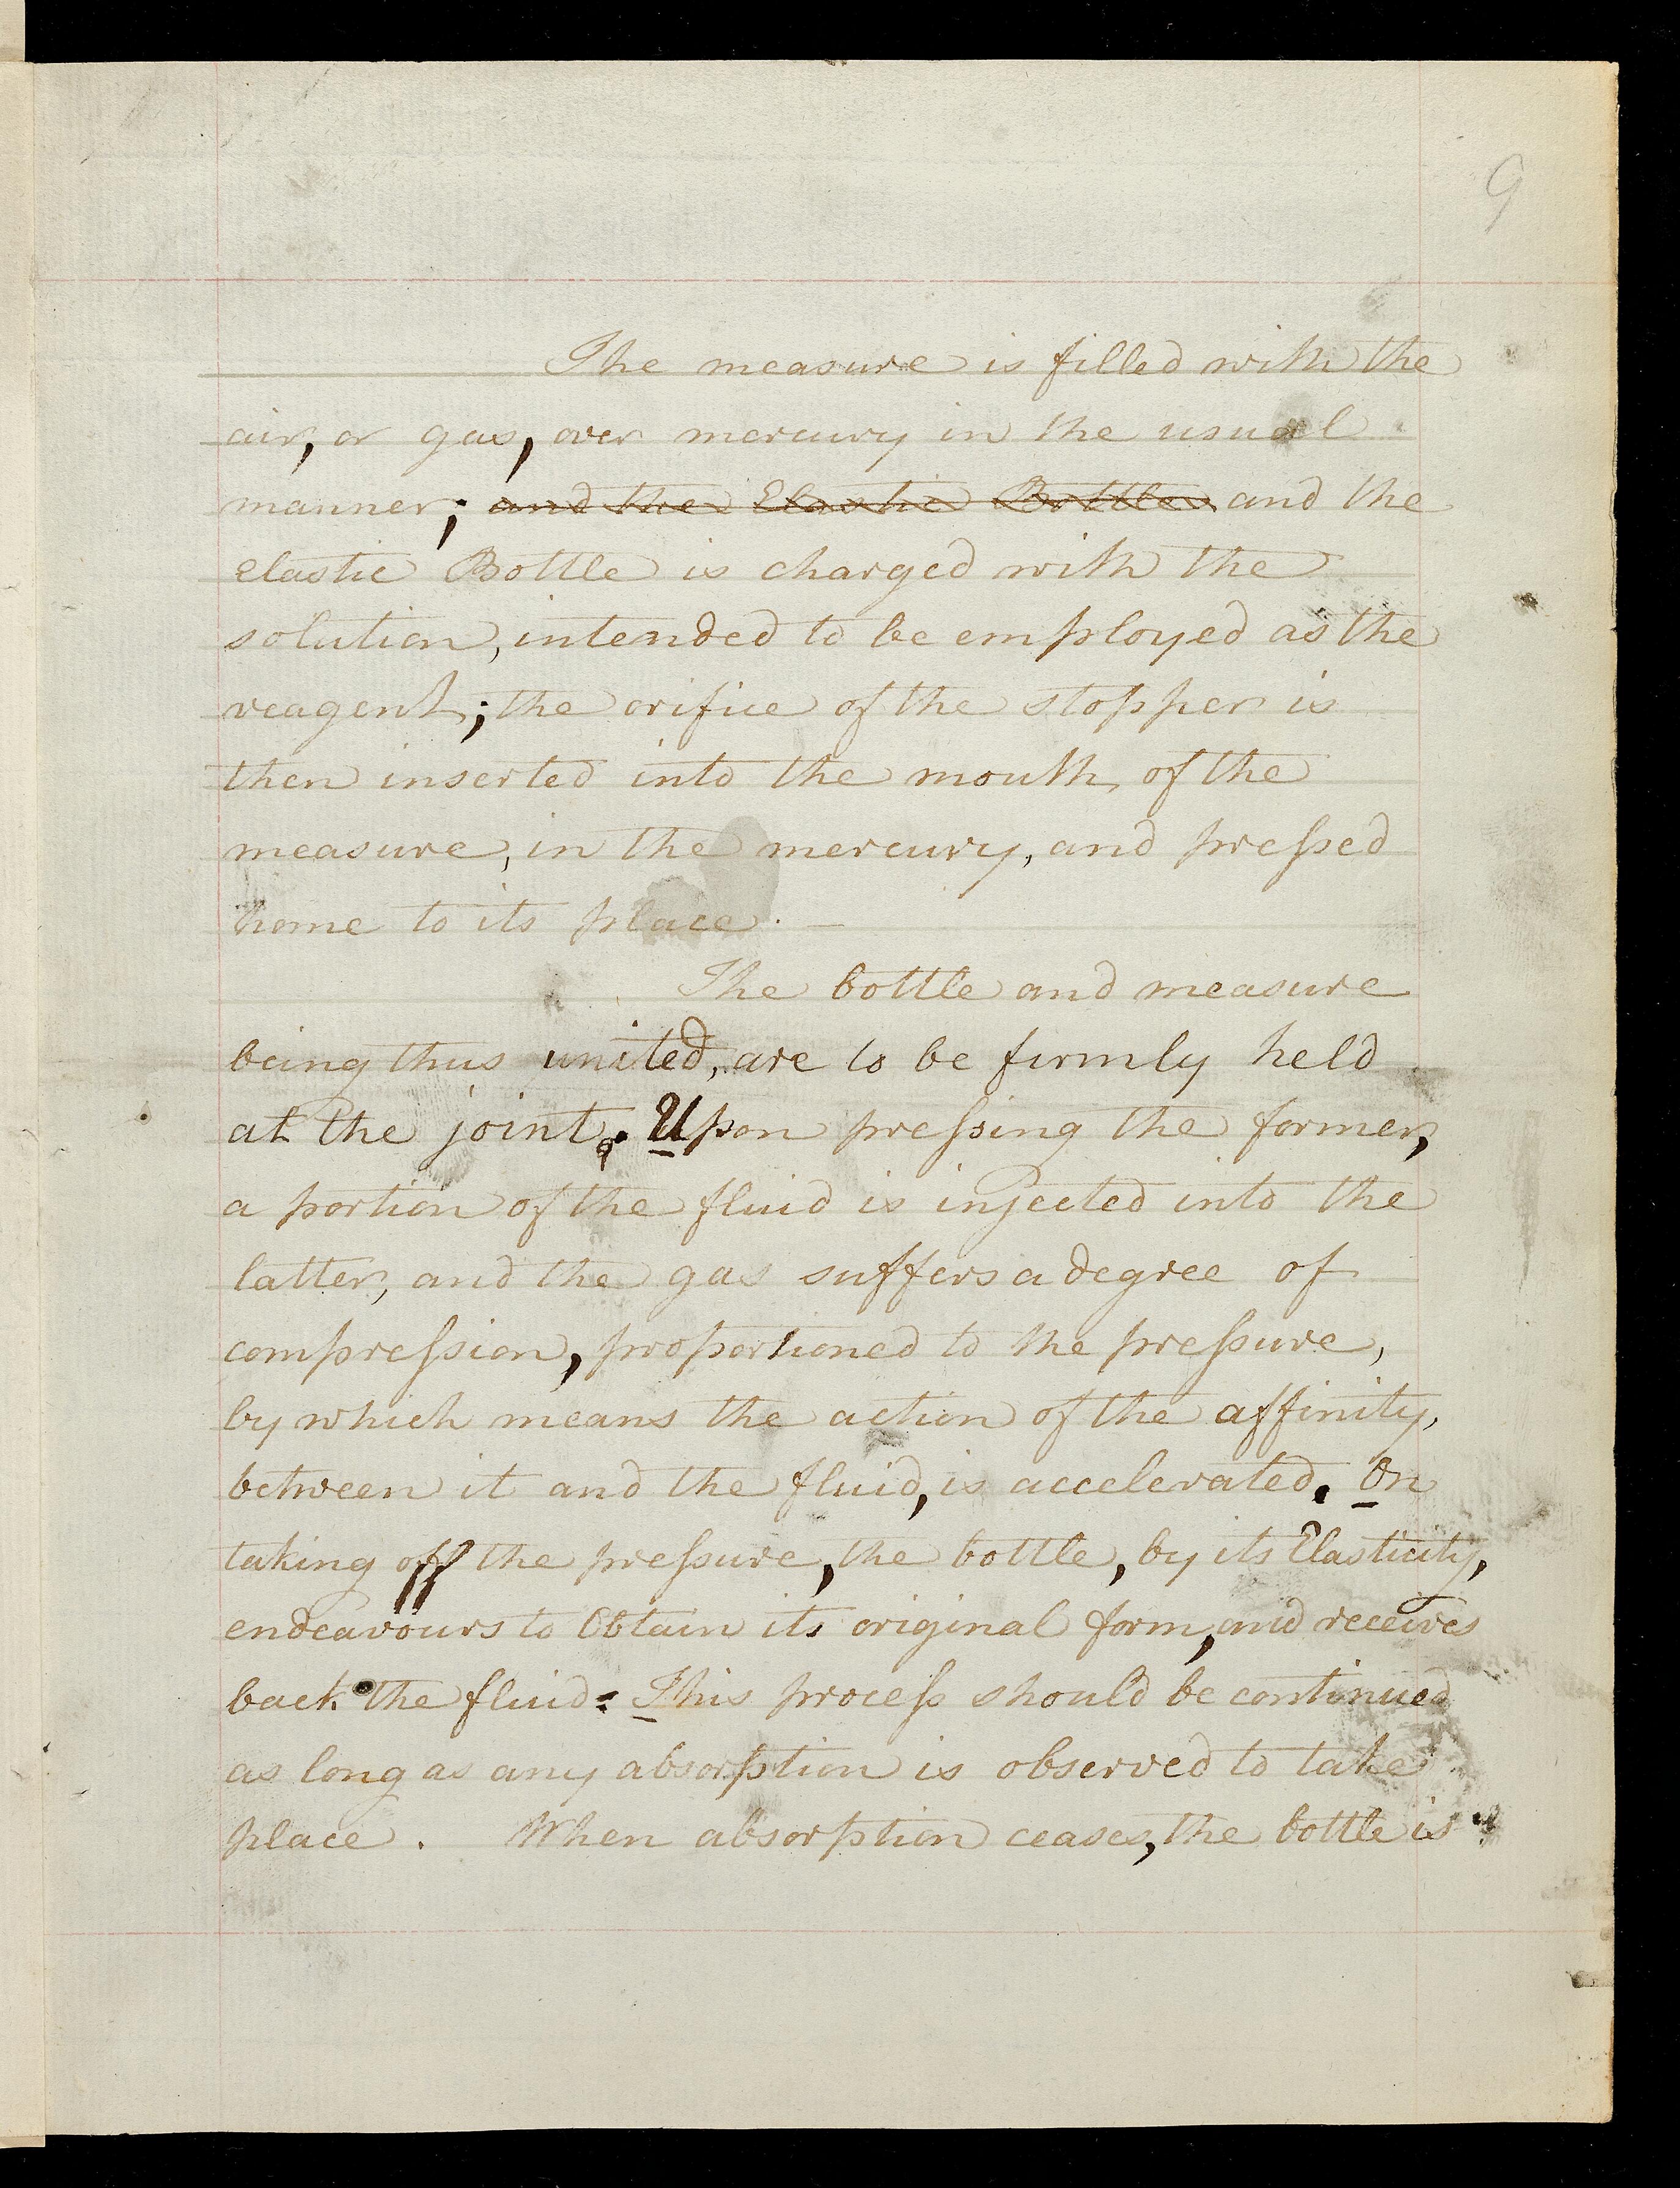 9
The measure is filled with the
air, or gas, over mercury in the usual
manner; and the Elastic Bottle and the
elastic Bottle is charged with the
solution, intended to be employed as the
reagent; the orifice of the stopper is
then inserted into the mouth of the
measure, in the mercury, and preſsed
home to its place. —
The bottle and measure
being thus united, are to be firmly held
at the joint. Upon preſsing the former,
a portion of the fluid is injected into the
latter, and the gas suffers a degree of
compreſsion, proportioned to the preſsure,
by which means the action of the affinity,
between it and the fluid, is accelerated. On
taking off the preſsure, the bottle, by its Elasticity,
endeavours to Obtain its original form, and receives
back the fluid. This proceſs should be continued
as long as any absorption is observed to take
place. When absorption ceases, the bottle is